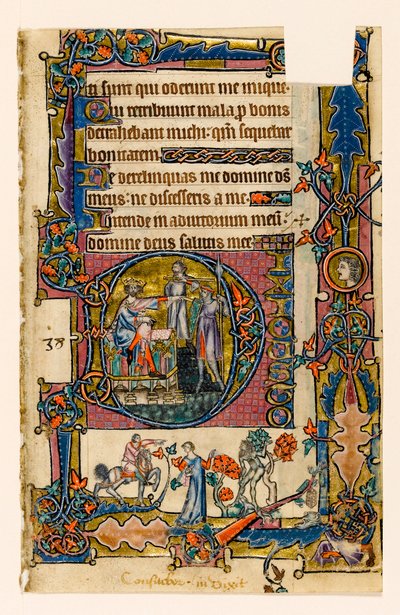 ti sunt qui oderunt me inique.
Qui retribuunt mala p̲ bonis
detrahebant michi: qm̄ sequebar
bonitatem.
Ne derelinquas me domine ds̄
meus: ne discesseris a me.
Intende in adiutorium meū:
domine deus salutis mee.
D
38